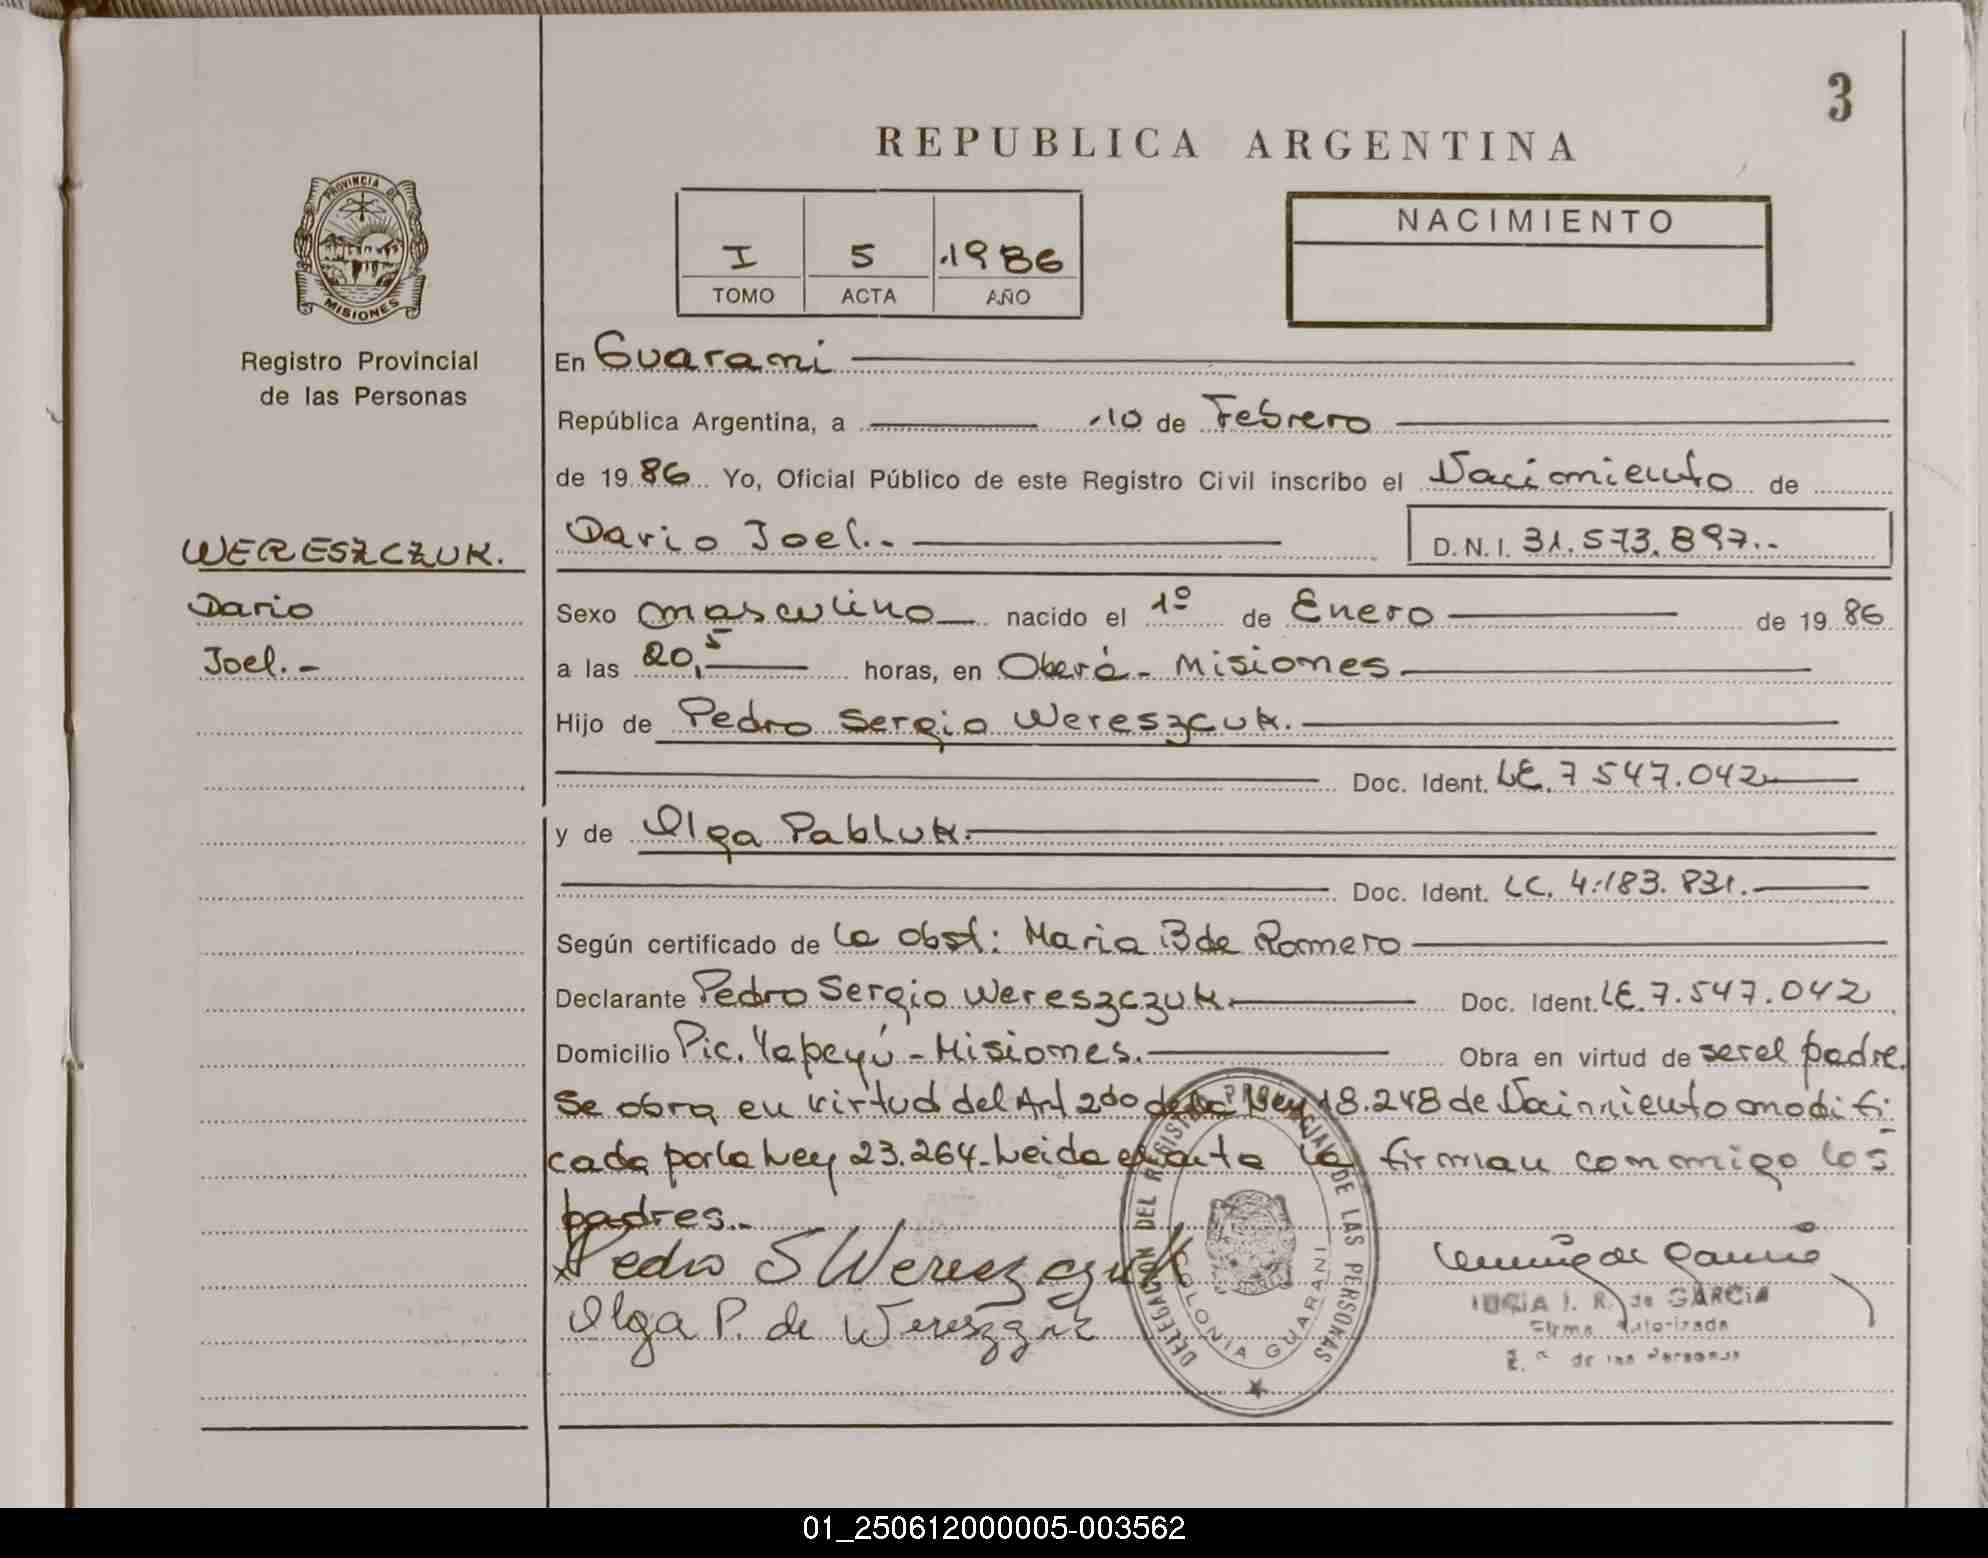 3
REPUBLICA ARGENTINA
PROVINCIA DE
MISIONES
Registro Provincial
de las Personas
I 5 1986
TOMO ACTA AÑO
NACIMIENTO
En Guarani
República Argentina, a 10 de Febrero
de 19 86 Yo, Oficial Público de este Registro Civil inscribo el Nacimiento de
WERESZCZUK.
Dario
Joel.-
Dario Joel.- D.N.I. 31.573.897.-
Sexo masculino nacido el 1º de Enero de 19 86
a las 20,5 horas, en Oberá - Misiones
Hijo de Pedro Sergio Wereszcuk.
Doc. Ident. LE. 7 547.042
y de Olga Pabluk.
Doc. Ident. LC. 4.183.831.
Según certificado de la obst: Maria B de Romero
Declarante Pedro Sergio Wereszczuk. Doc. Ident. LE. 7.547.042
Domicilio Pic. Yapeyú - Misiones. Obra en virtud de ser el padre.
Se obra en virtud del Art 2do de la Ley 18.248 de Nacimiento modifi
cada por la Ley 23.264. Leida el acta la firman conmigo los
padres.-
Pedro S Wereszczuk
Olga P. de
DELEGACION DEL REGISTRO PROVINCIAL DE LAS PERSONAS
COLONIA GUARANI
I. R. de GARCIA
Firma Autorizada
de las Personas
01_250612000005-003562